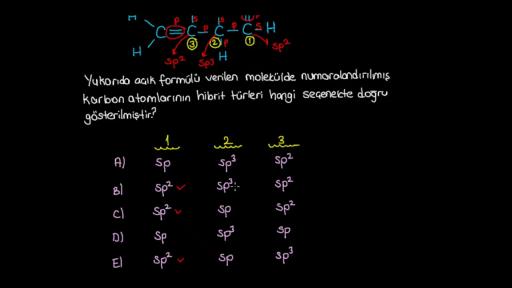 H H
C = C - C - C H
p s p s p s
H ③ ② p ① s
sp² sp³ H sp²
Yukarıda açık formülü verilen molekülde numaralandırılmış
karbon atomlarının hibrit türleri hangi seçenekte doğru
gösterilmiştir?
1 2 3
A) sp sp³ sp²
B) sp² sp³ sp²
C) sp² sp sp²
D) sp sp³ sp
E) sp² sp sp³